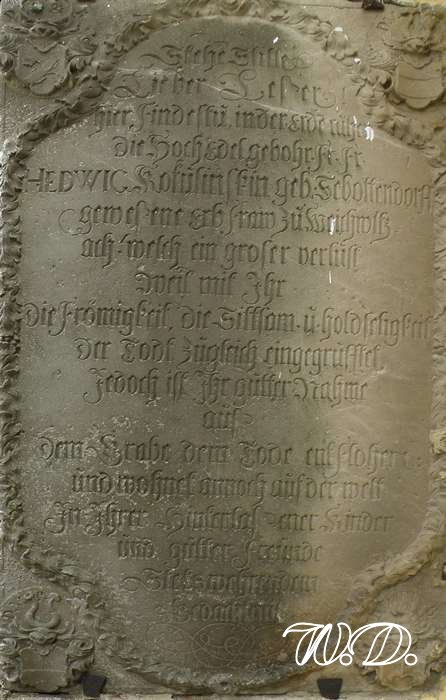 Stehe Stille
Lieber Leser
hier findestu, in der erde ruhe
die HochEdelgebohr. Fr. Fr
HEDWIG Kokulinskin geb. Sebottendorff.
gewesene Erbfraw zu
ach! welch ein groser verlust
Weil mit Ihr
die Frömigkeit, die Sittsam u holdseligkeit
der Todt zugleich eingegrufftet.
Jedoch ist Ihr gutter Nahme
aus
dem Grabe dem Tode entflohen
und wohnet annoch auf der welt
In Ihrer Hinterlassener Kinder
und gutter Freunde
Stets wehrendem
Gedächtnus
W.D.